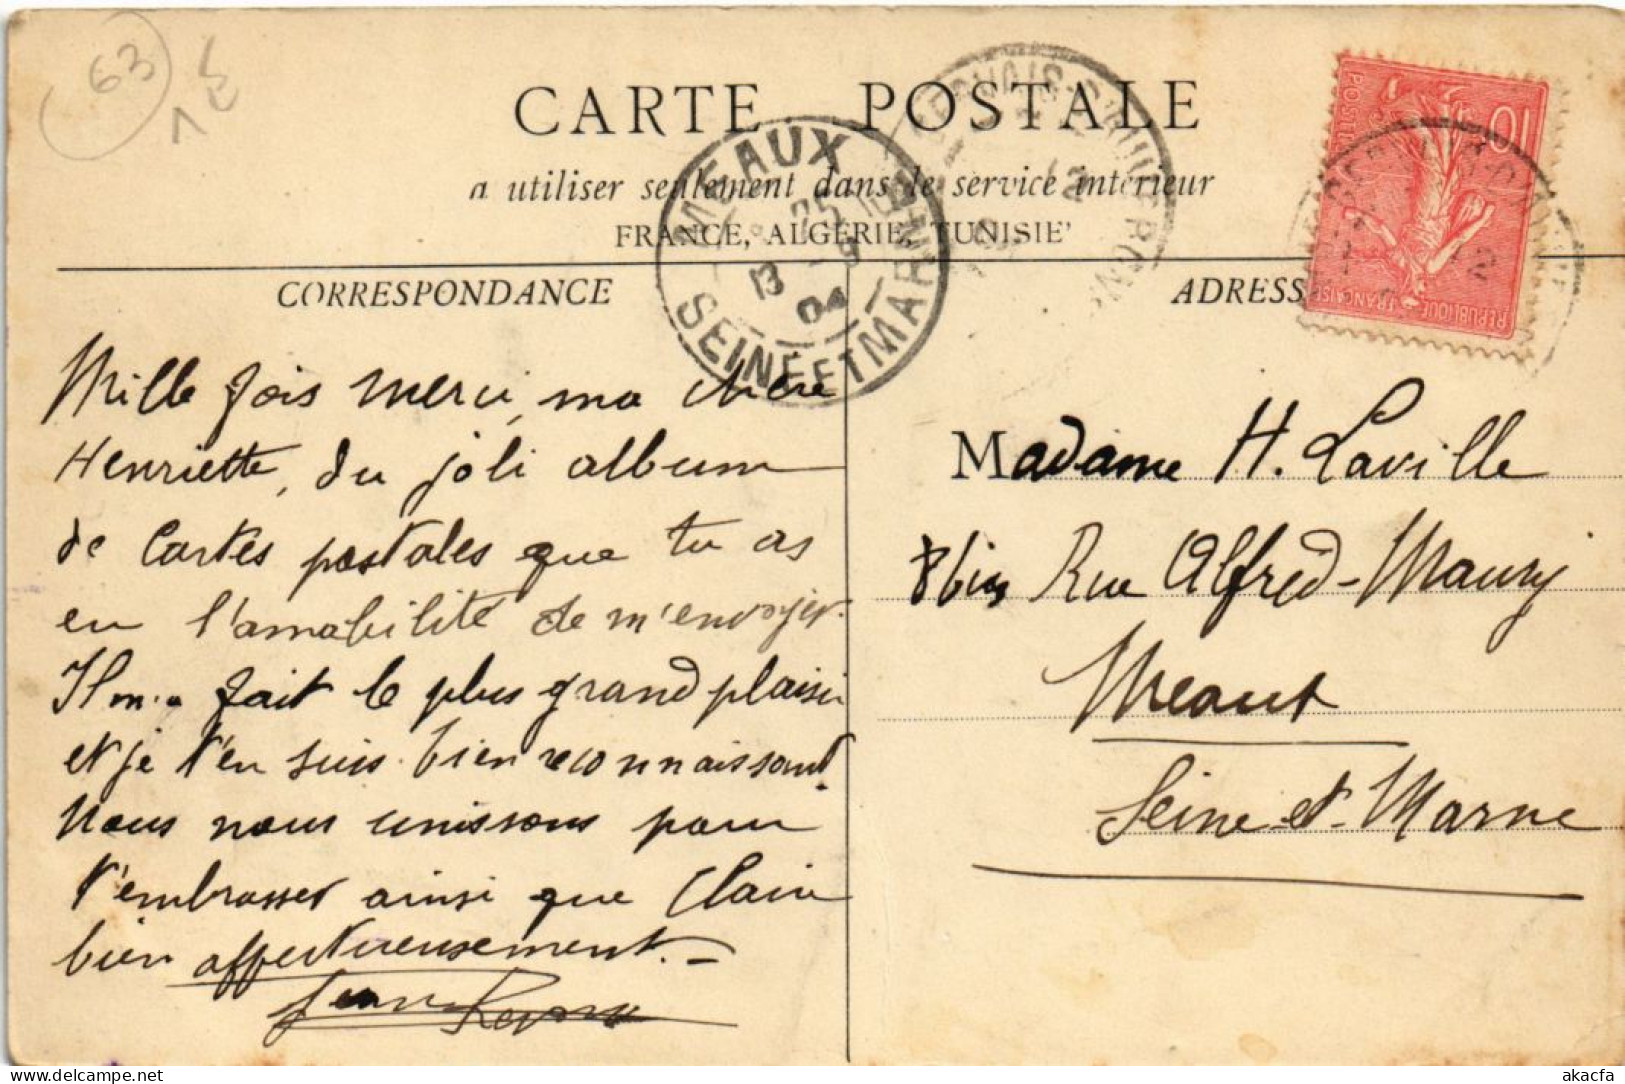 63
CARTE POSTALE
a utiliser seulement dans le service intérieur
FRANCE, ALGERIE, TUNISIE
CORRESPONDANCE
ADRESS
MEAUX
SEINE ET MARNE
25
13 - 9
04
10
POSTES
REPUBLIQUE FRANÇAISE
Mille fois merci, ma chère
Henriette, du joli album
de Cartes postales que tu as
eu l'amabilité de m'envoyer.
Il m'a fait le plus grand plaisir
et je t'en suis bien reconnaissant.
Nous nous unissons pour
t'embrasser ainsi que Clair
bien affectueusement. -
Madame H. Laville
8 bis Rue Alfred-Maury
Meaux
Seine-et-Marne
akacfa